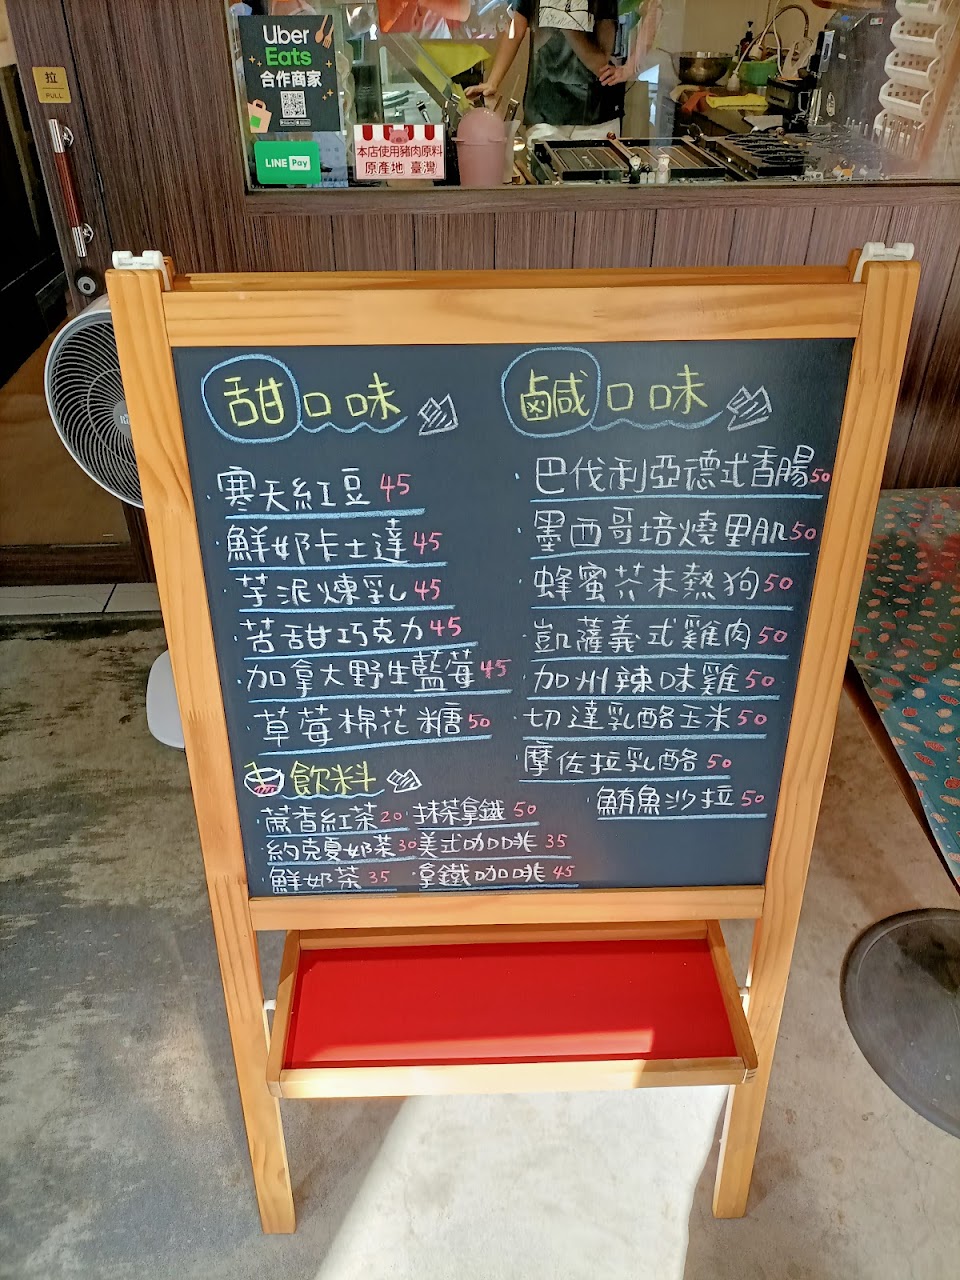 拉
PULL
Uber
Eats
合作商家
LINE Pay
本店使用豬肉原料
原產地 臺灣
甜口味
寒天紅豆 45
鮮奶卡士達 45
芋泥煉乳 45
苦甜巧克力 45
加拿大野生藍莓 45
草莓棉花糖 50
飲料
蔗香紅茶 20
約克夏奶茶 30
鮮奶茶 35
抹茶拿鐵 50
美式咖啡 35
拿鐵咖啡 45
鹹口味
巴伐利亞德式香腸 50
墨西哥培燒里肌 50
蜂蜜芥末熱狗 50
凱薩義式雞肉 50
加州辣味雞 50
切達乳酪玉米 50
摩佐拉乳酪 50
鮪魚沙拉 50